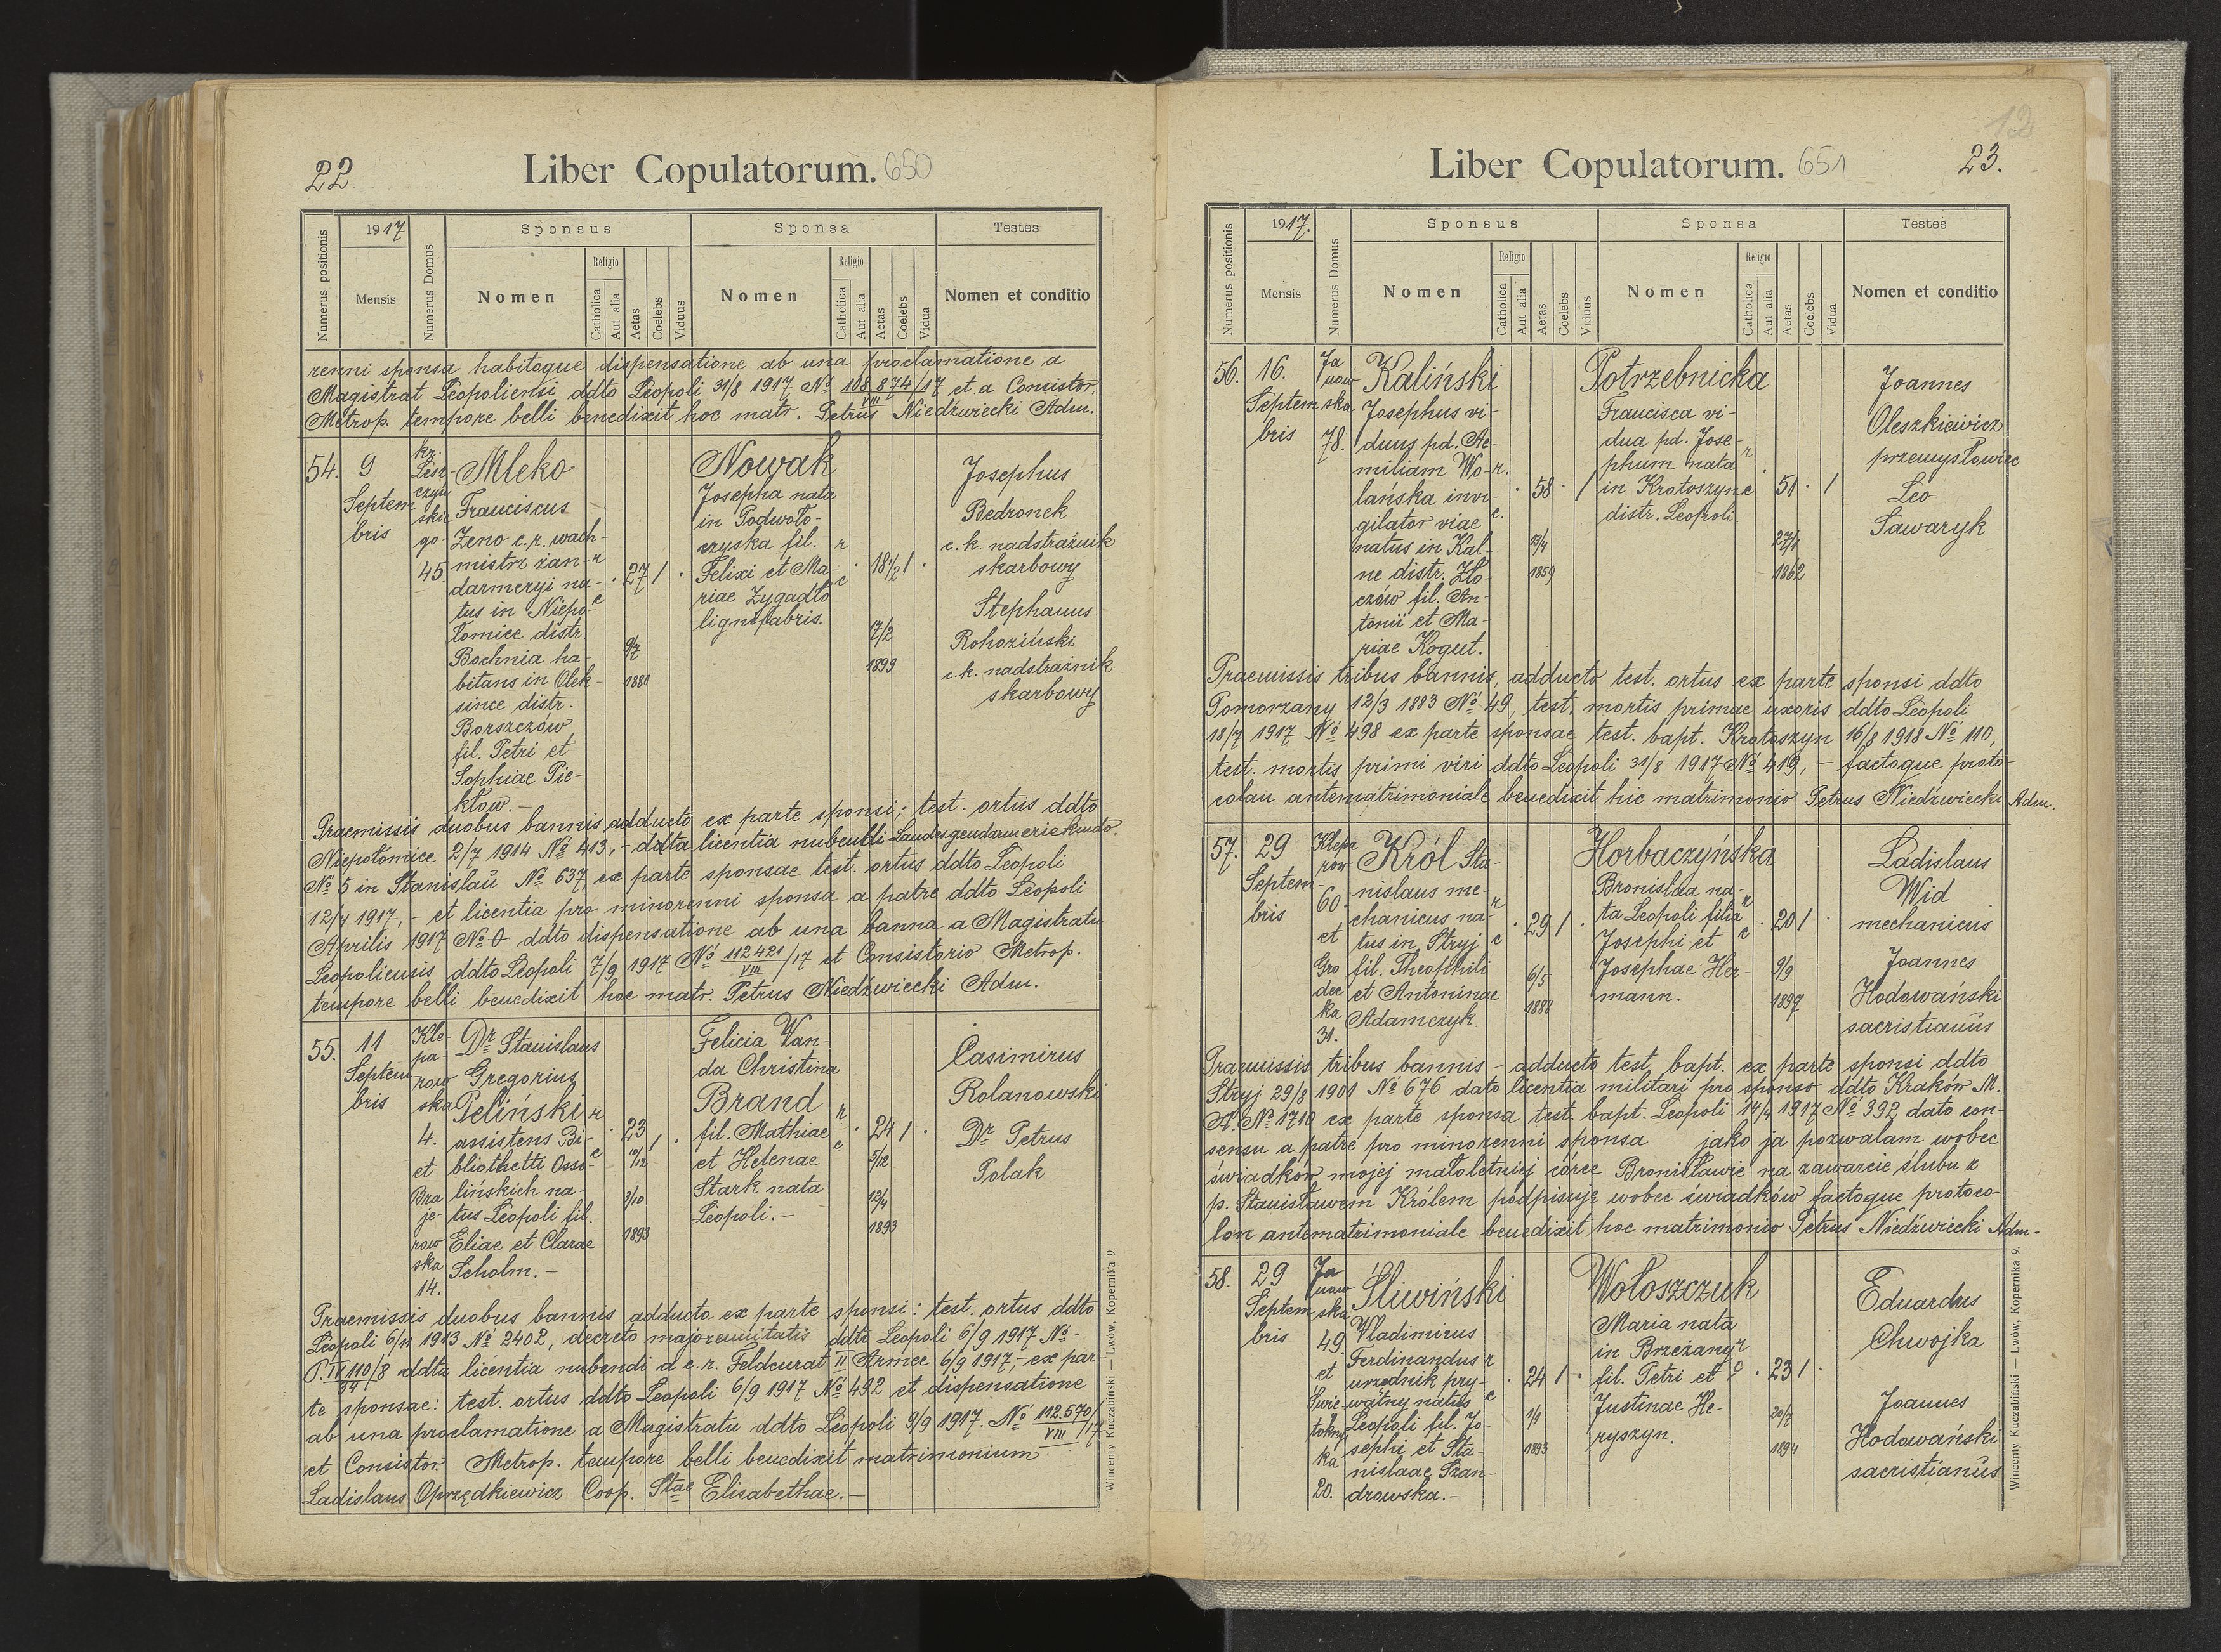 22
Liber Copulatorum. 650
1917
Sponsus
Sponsa
Testes
Numerus positionis
Mensis
Numerus Domus
Nomen
Religio
Catholica
Aut alia
Aetas
Coelebs
Viduus
Nomen
Religio
Catholica
Aut alia
Aetas
Coelebs
Vidua
Nomen et conditio
renni sponsa habitoque dispensatione ab una proclamatione a
Magistrat Leopoliensi ddto Leopoli 31/8 1917 No 108.874/17 et a Consistor.
VIII
Metrop. tempore belli benedixit hoc matr. Petrus Niedźwiecki Adm.
54.
9
Septem
bris
kr.
Lesz-
czyń
skie
go-
45.
Mleko
Franciscus
Zeno c.r. wach-
mistrz żan-
darmeryi na-
tus in Niepo-
łomice distr.
Bochnia ha-
bitans in Olek-
since distr.
Borszczów
fil. Petri et
Sophiae Pie-
kłow.-
r
c
27 /
9/7
1880
Nowak
Josepha nata
in Podwoło-
czyska fil.
Felixi et Ma-
riae Zygadło
lignifabris.
r
c
18 1/2 /
17/2
1899
Josephus
Bedronek
c.k. nadstrażnik
skarbowy
Stephanus
Rohoziński
c.k. nadstrażnik
skarbowy
Praemissis duobus bannis adducto ex parte sponsi; test. ortus ddto
Niepołomice 2/7 1914 No 413,- ddta licentia nubendi Landesgendarmeriekmdo.
No 5 in Stanislaŭ No 637 ex parte sponsae test. ortus ddto Leopoli
12/4 1917,- et licentia pro minorenni sponsa a patre ddto Leopoli
Aprilis 1917 No 0 ddto dispensatione ab una banna a Magistratu
Leopoliensis ddto Leopoli 7/9 1917 No 112421/17 et Consistorio Metrop.
VIII
tempore belli benedixit hoc matr. Petrus Niedźwiecki Adm.
55.
11
Septem
bris
Kle-
pa-
row
ska
4.
et
Bra
je-
row
ska
14.
Dr Stanislaus
Gregorius
Peliński
assistens Bi-
bliothetti Osso-
lińskich na-
tus Leopoli fil.
Eliae et Clarae
Scholm.-
r
c
23 /
10/12
3/10
1893
Felicia Wan-
da Christina
Brand
fil. Mathiae
et Helenae
Stark nata
Leopoli.-
r
c
24 /
5/12
12/4
1893
Casimirus
Rolanowski
Dr Petrus
Polak
Praemissis duobus bannis adducto ex parte sponsi: test. ortus ddto
Leopoli 6/11 1913 No 2402, decreto majorennitatis ddto Leopoli 6/9 1917 No-
P. IV 110/8 ddta licentia nubendi a c.r. Feldcurat II Armee 6/9 1917,- ex par-
34
te sponsae: test. ortus ddto Leopoli 6/9 1917 No 492 et dispensatione
ab una proclamatione a Magistratu ddto Leopoli 9/9 1917. No 112.570/17
VIII
et Consistor. Metrop. tempore belli benedixit matrimonium
Ladislaus Oprzędkiewicz Coop. Stae Elisabethae.-
Wincenty Kuczabiński — Lwów, Kopernika 9.
12
Liber Copulatorum. 651
23.
1917.
Sponsus
Sponsa
Testes
Numerus positionis
Mensis
Numerus Domus
Nomen
Religio
Catholica
Aut alia
Aetas
Coelebs
Viduus
Nomen
Religio
Catholica
Aut alia
Aetas
Coelebs
Vidua
Nomen et conditio
56.
16.
Septem
bris
Ja
now
ska
78.
Kaliński
Josephus vi-
duus pd. Ae-
miliam Wo-
lańska invi-
gilator viae
natus in Kal-
ne distr. Zło-
czów fil. An-
tonii et Ma-
riae Kogut.
r.
c.
58 /
13/4
1859
Potrzebnicka
Francisca vi-
dua pd. Jose-
phum nata
in Krotoszyn
distr. Leopoli
r
c
51 /
27/1
1862
Joannes
Oleszkiewicz
przemysłowiec
Leo
Sawaryk
Praemissis tribus bannis, adducto test. ortus ex parte sponsi ddto
Pomorzany 12/3 1883 No 49, test. mortis primae uxoris ddto Leopoli
18/7 1917 No 498 ex parte sponsae test. bapt. Krotoszyn 16/8 1918 No 110,
test. mortis primi viri ddto Leopoli 31/8 1917 No 419,- factoque proto-
colau antematrimoniale benedixit hic matrimonio Petrus Niedźwiecki Adm.
57.
29
Septem-
bris
Klepa
row
60.
et
Gro
dec
ka
31.
Król Sta-
nislaus me-
chanicus na-
tus in Stryj
fil. Theophili
et Antoninae
Adamczyk.
r
c
29 /
6/5
1888
Horbaczyńska
Bronislaa na-
ta Leopoli filia
Josephi et
Josephae Her-
mann.
r
c
20 /
9/9
1897
Ladislaus
Wid
mechanicus
Joannes
Hodowański
sacristianŭs
Praemissis tribus bannis - adducto test. bapt. ex parte sponsi ddto
Stryj 29/8 1901 No 676 dato licentia militari pro sponso ddto Kraków M.
A. No 1710 ex parte sponsa test. bapt. Leopoli 14/4 1917 No 392, dato con-
sensu a patre pro minorenni sponsa jako ja pozwalam wobec
świadków mojej małoletniej córce Bronisławie na zawarcie ślubu z
p. Stanisławem Królem podpisuję wobec świadków factoque protoco-
lon antematrimoniale benedixit hoc matrimonio Petrus Niedźwiecki Adm-
58.
29
Septem
bris
Ja
now
ska
49.
et
Świe
tokrzy
ka
20.
Śliwiński
Vladimirus
Ferdinandus
urzędnik pry-
watny natus
Leopoli fil. Jo-
sephi et Sta-
nislaae Szan-
drowska.-
r
c
24 /
1/1
1893
Wołoszczuk
Maria nata
in Brzeżany
fil. Petri et
Justinae He-
ryszyn.
r
c
23 /
20/7
1894
Eduardus
Chwojka
Joannes
Hodowański
sacristianŭs
Wincenty Kuczabiński — Lwów, Kopernika 9.
333